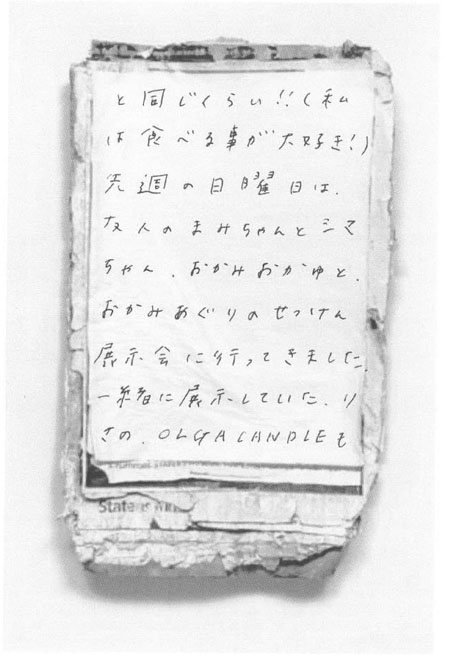 と同じくらい!!(私
は食べる事が大好き!)
先週の日曜日は、
友人のまみちゃんとシマ
ちゃん、おかみおかゆと、
おかみめぐりのせっけん
展示会に行ってきました。
一緒に展示していた、り
さの、OLGACANDLEも
State